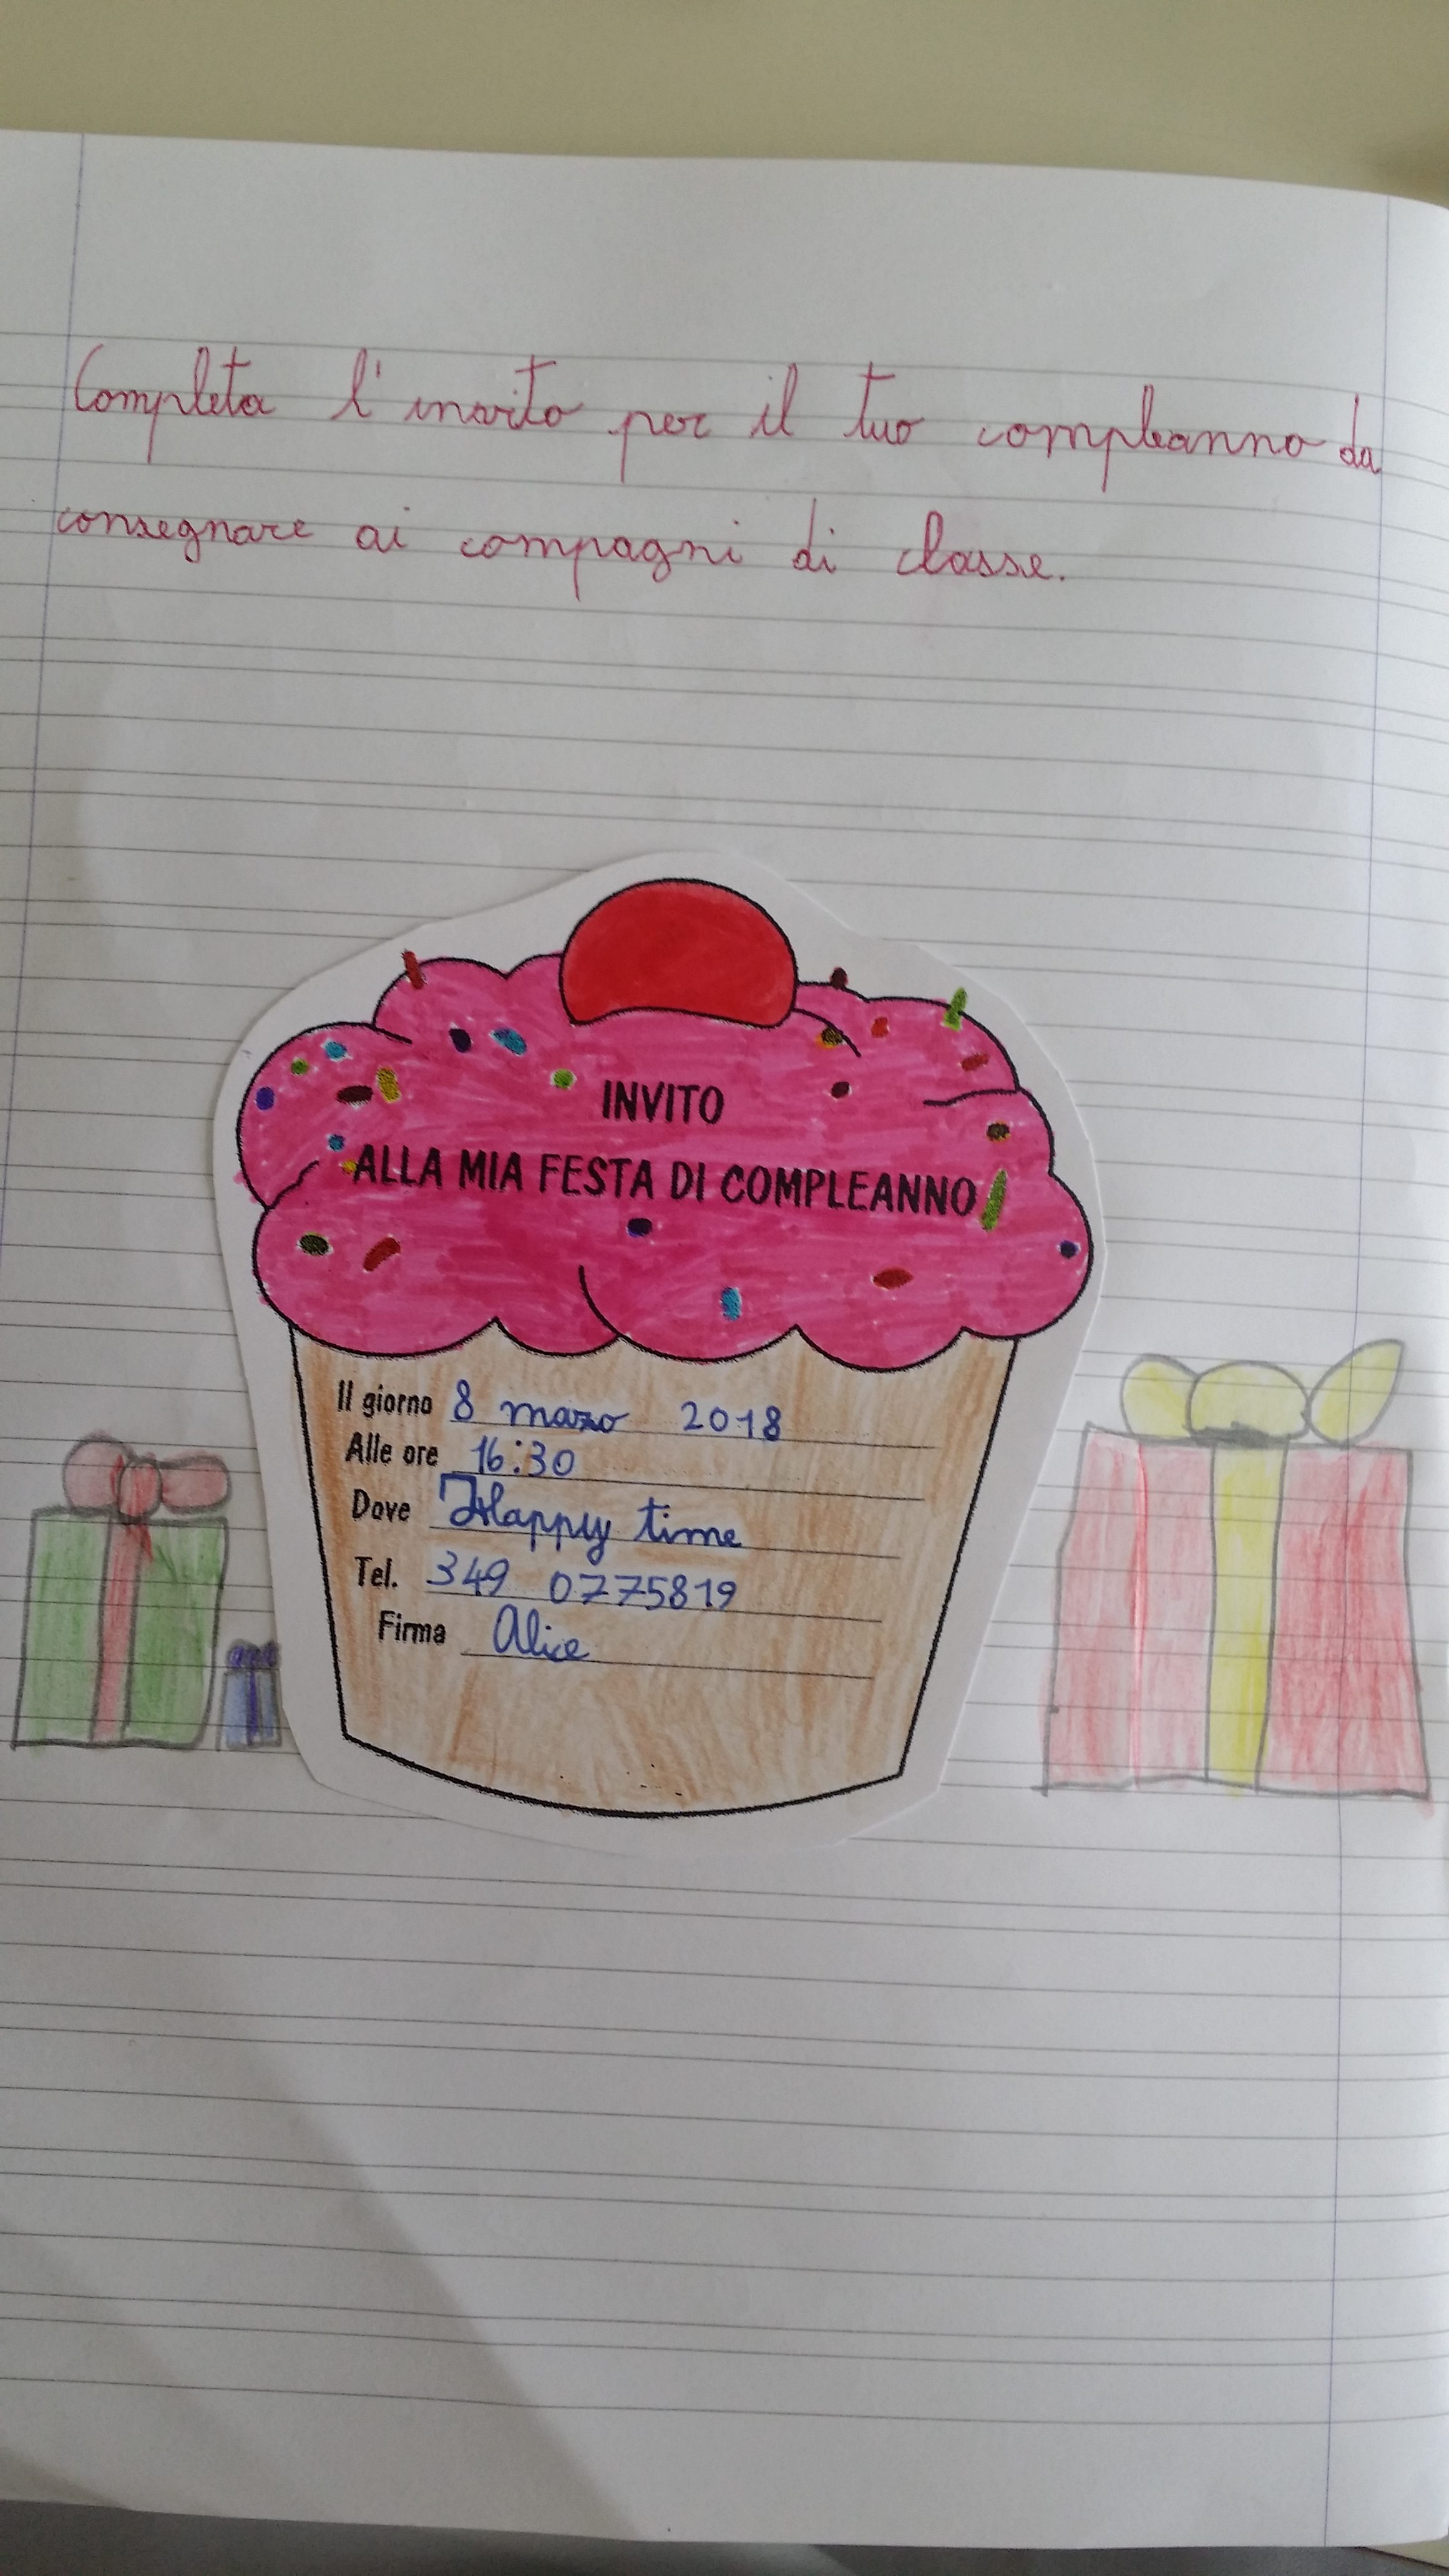 Completa l'invito per il tuo compleanno da
consegnare ai compagni di classe.
INVITO
ALLA MIA FESTA DI COMPLEANNO
Il giorno 8 marzo 2018
Alle ore 16:30
Dove Happy time
Tel. 349 0775819
Firma Alice